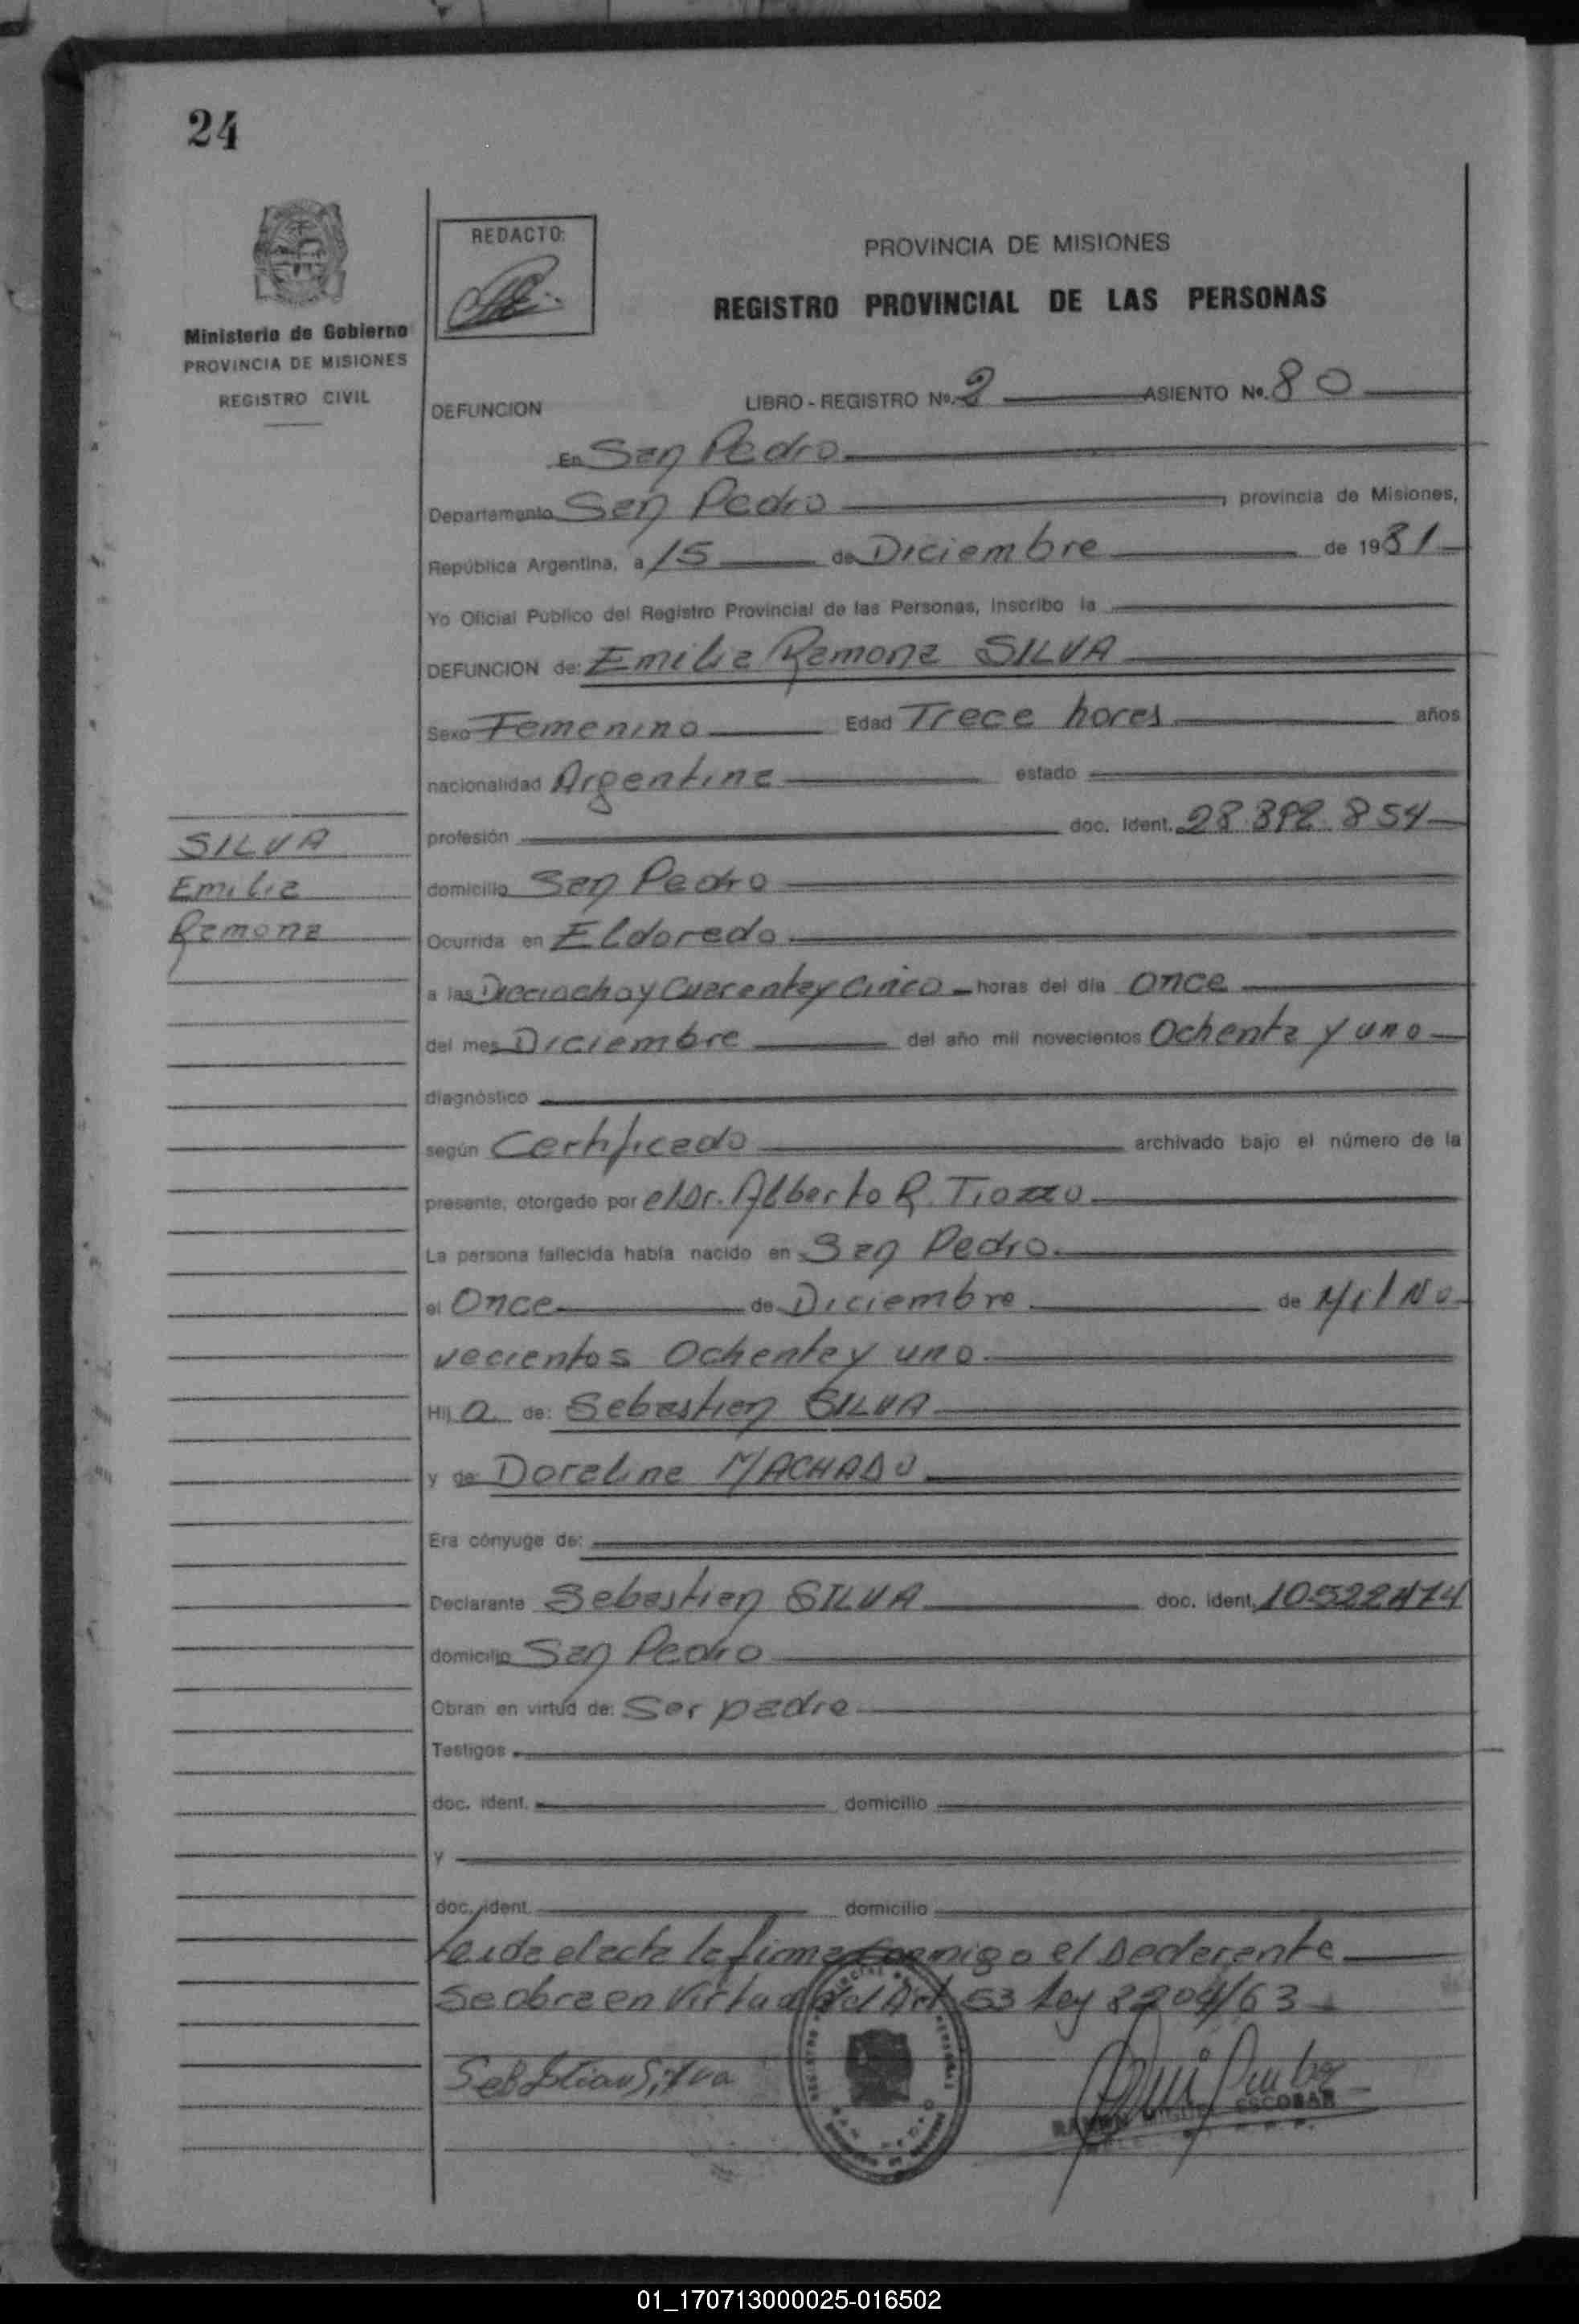 24
REDACTO:
PROVINCIA DE MISIONES
REGISTRO PROVINCIAL DE LAS PERSONAS
Ministerio de Gobierno
PROVINCIA DE MISIONES
REGISTRO CIVIL
DEFUNCION LIBRO - REGISTRO No. 2 ASIENTO No. 80
En San Pedro
Departamento San Pedro, provincia de Misiones,
República Argentina, a 15 de Diciembre de 1981
Yo Oficial Público del Registro Provincial de las Personas, inscribo la
DEFUNCION de: Emilia Ramona SILVA
Sexo Femenino Edad Trece horas años
nacionalidad Argentina estado
profesión doc. ident. 28.892.854
SILVA
Emilia
Ramona
domicilio San Pedro
Ocurrida en Eldorado
a las Dieciocho y Cuarenta y Cinco horas del día Once
del mes Diciembre del año mil novecientos Ochenta y uno
diagnóstico
según Certificado archivado bajo el número de la
presente, otorgado por el Dr. Alberto R. Tiozzo
La persona fallecida había nacido en San Pedro.
el Once de Diciembre de Mil No
vecientos Ochenta y uno
Hij a de: Sebastian SILVA
y de: Doralina MACHADO
Era cónyuge de:
Declarante Sebastian SILVA doc. ident. 10522474
domicilio San Pedro
Obran en virtud de: Ser padre
Testigos
doc. ident. domicilio
y
doc. ident. domicilio
Leida el acta la firma Conmigo el Declarante
Se obra en Virtud del Art 53 Ley 8204/63
Sebastian Silva
RAMON MIGUEL ESCOBAR
01_170713000025-016502